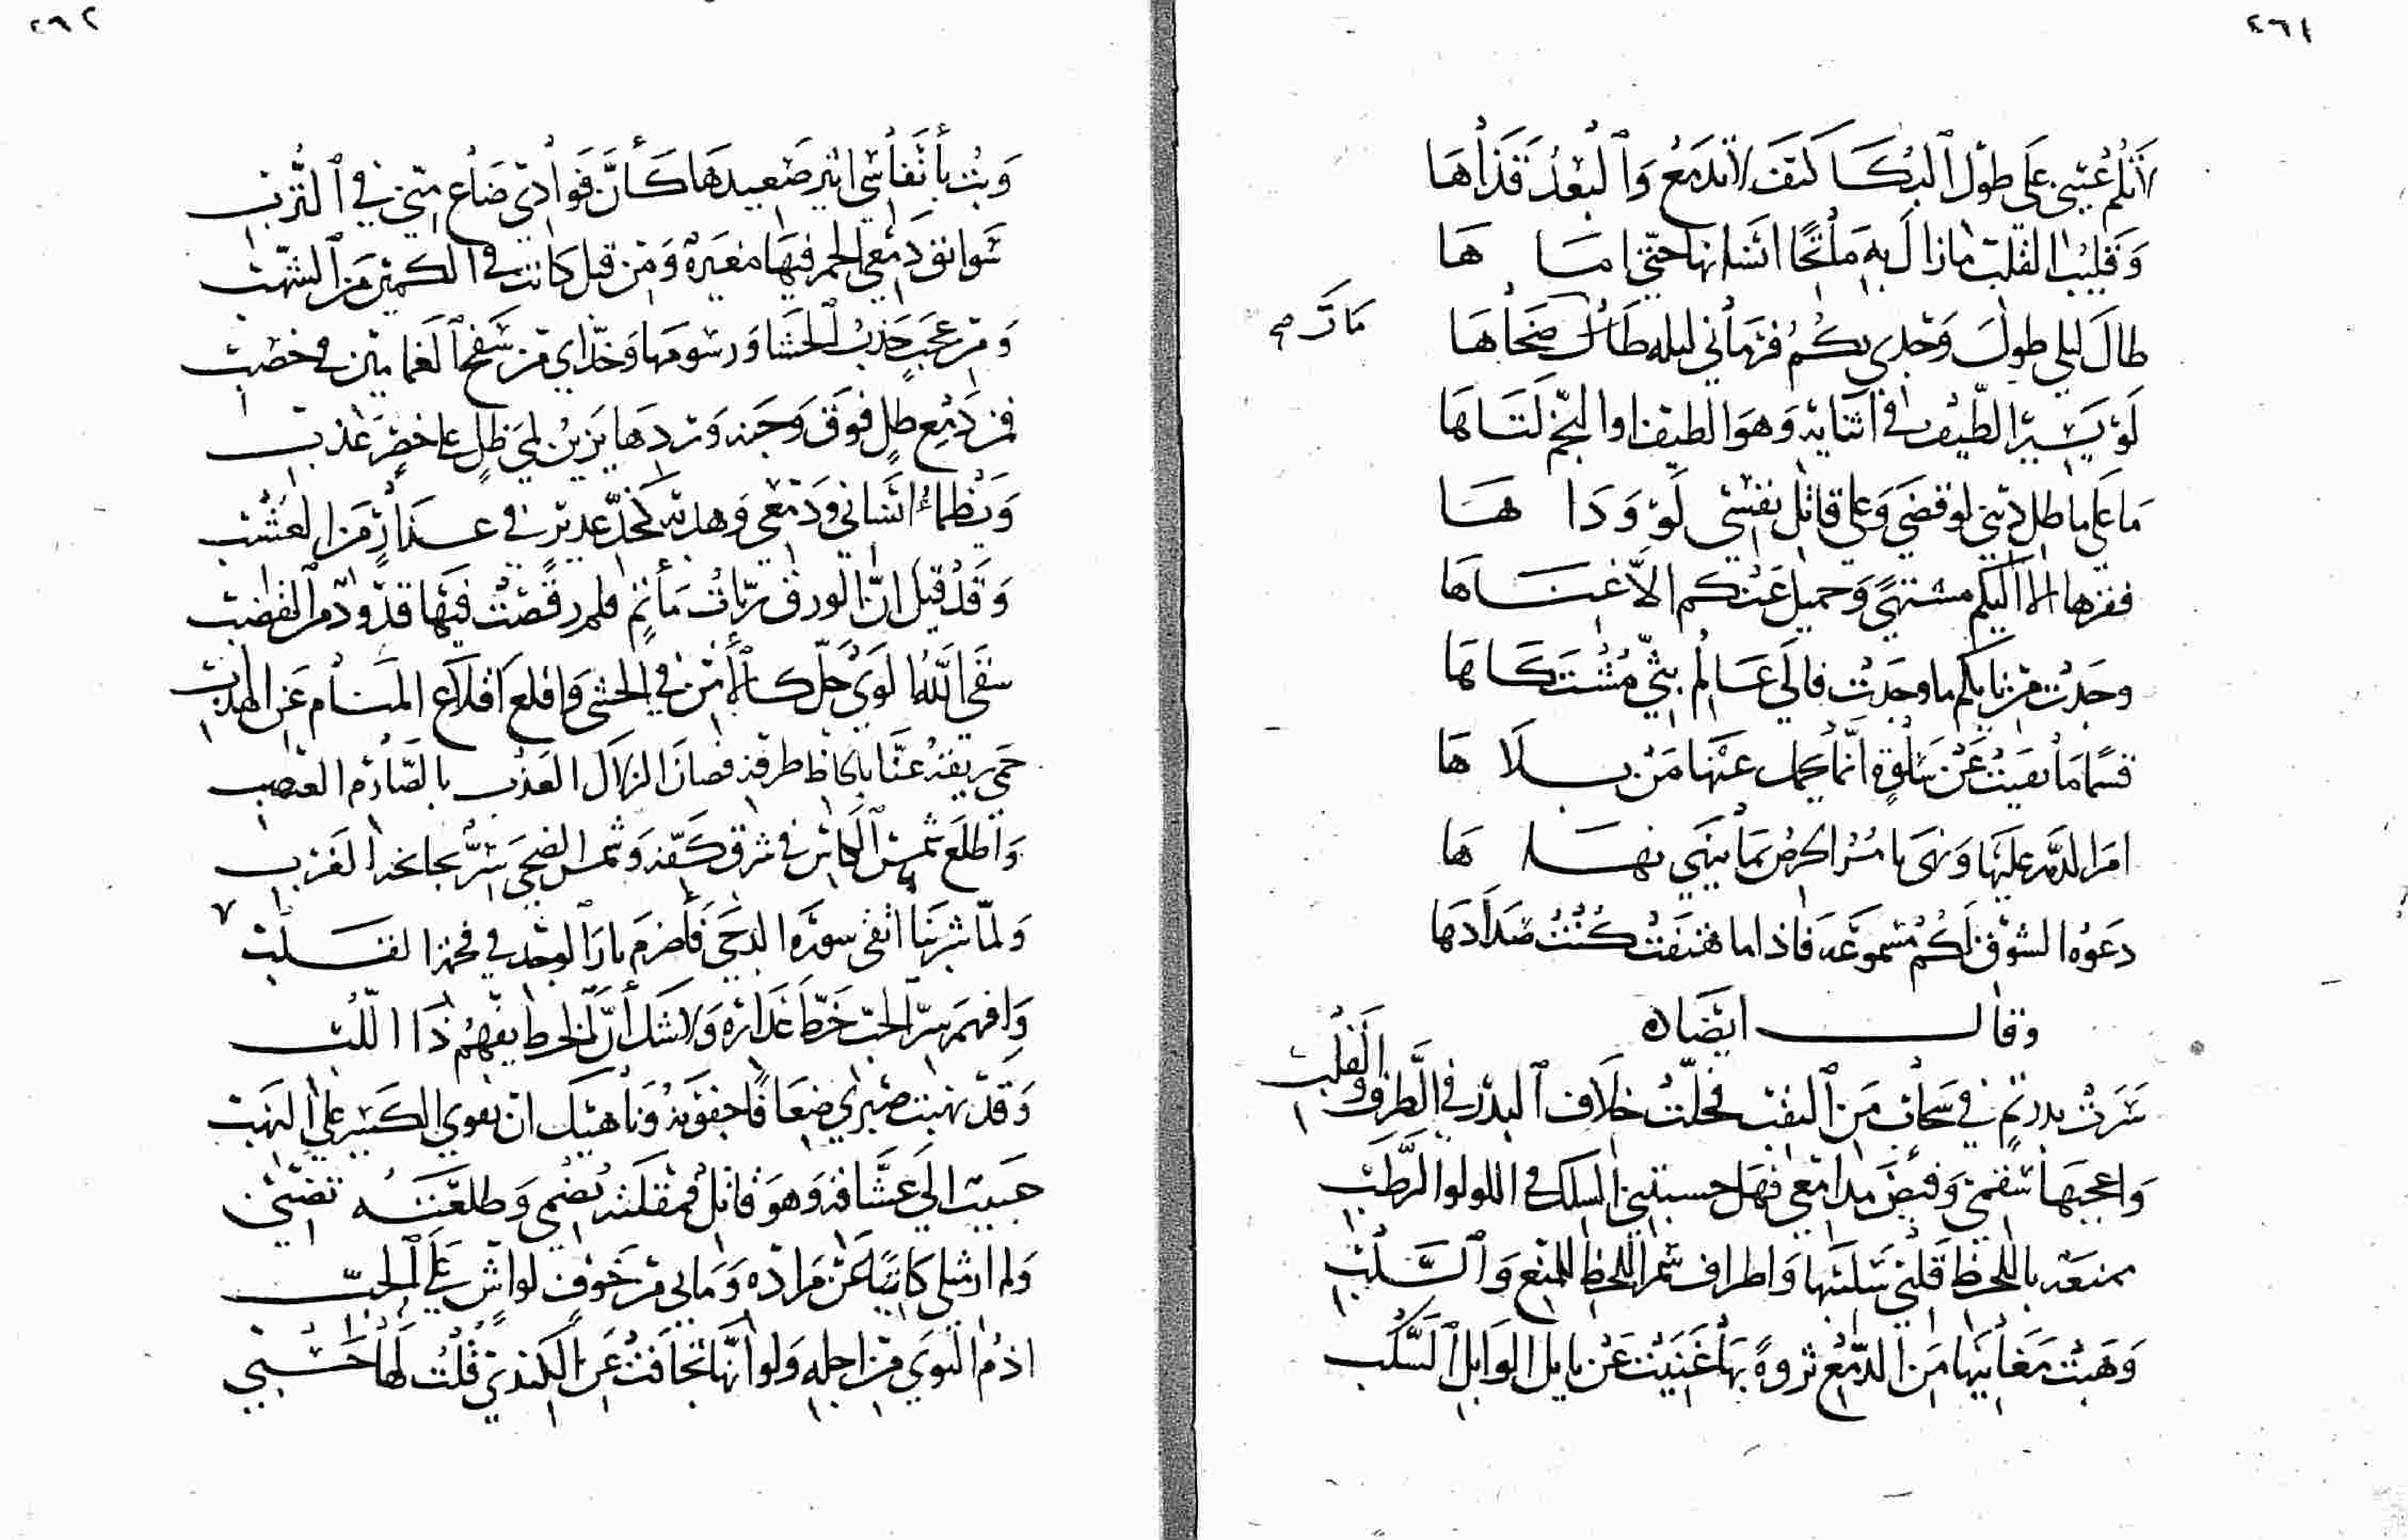 ٤٦١
لا تلم عيني على طول البكا كيف لا تدمع والبعد قذاها
وقليب القلب ما زال به ماتحا انسانها حتى اماها
طال ليلي طول وجدي بكم فزماني ليله طال ضحاها
مارَّ صح
لو يسير الطيف في اثنايه وهو الطيف او النجم لتاها
ما على ماطل ديني لو قضى وعلى قاتل نفسي لو وداها
فقرها الا اليكم مشتهى وجميل عنكم الا غناها
وجدت من نايكم ما وجدت فالى عالم بثي مشتكاها
قسما ما بقيت عن سلوة انما يحمل عنها من بلاها
امر الدهر عليها ونهى يا مر الحرص بما ينهى نهاها
دعوة الشوق لكم مسموعة فاذا ما هتفت كنت صداها
وقال ايضا
سرت بدر تم في سحاب من النقب فحلت خلاف البدر في الطرف والقلب
واعجبها سقمي وفيض مدامعي فهل حسبتني السلك في اللولو الرطب
ممنعة باللحظ قلبي سلبتها واطراف سمر اللحظ للمنع والسلب
وهبت مغانيها من الدمع ثروة بها غنيت عن نايل الوابل السكب
٤٦٢
وبت بأنفاسي اثير صعيدها كأن فوادي ضاع مني في الترب
سوابق دمعي الحمر فيها مغيرة ومن قبل كانت في الكميت من الشهب
ومن عجب جذب الحشا ورسومها وخداي من سفح الغمامين في خصب
فمن دمع طل فوق وجنة وردها يزين لمى ظل على خصر عذب
ويظماء انساني ودمعي وهدبه كخد غدير في عذار من العشب
وقد قيل ان الورق ربات مأتم فلم رقصت فيها قدود من القضب
سقى الله الوى حل كالأمن في الحشى واقلع اقلاع المنام عن الهدب
حمى ريقه عنا بالحاظ طرفه فصان الزلال العذب بالصارم العضب
واطلع شمس الكاس في شرق كفه وشمس الضحى سر بجانحة الغرب
ولما شربنا اتقى سورة الدجى فأضرم نار الوجد في فحمة القلب
وافهم سر الحب خط عذاره ولا شك أن الخط يفهم ذا اللب
وقد نهبت صبري ضعافا جفونه وناهيك ان تقوى الكسير على النهب
حبيب الى عشاقه وهو قاتل فمقلته تضمي وطلعته تصبي
ولم ارسلي كانيا عن مراده ومالي من خوف لواش على الحب
اذم النوى من اجله ولو انها تجافت عن الكندي قلت لها حسبي